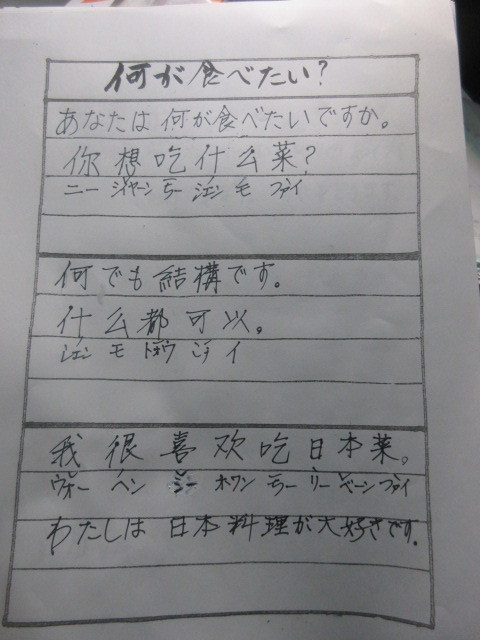 何が食べたい?
あなたは 何が食べたいですか。
你想吃什么菜?
ニー シャーン チー シェン モ ツァイ
何でも結構です。
什么都可以。
シェン モ ドォウ コォ イ
我很喜欢吃日本菜。
ウォー ヘン シー ホワン チー リー ベーン ツァイ
わたしは 日本料理が大好きです。